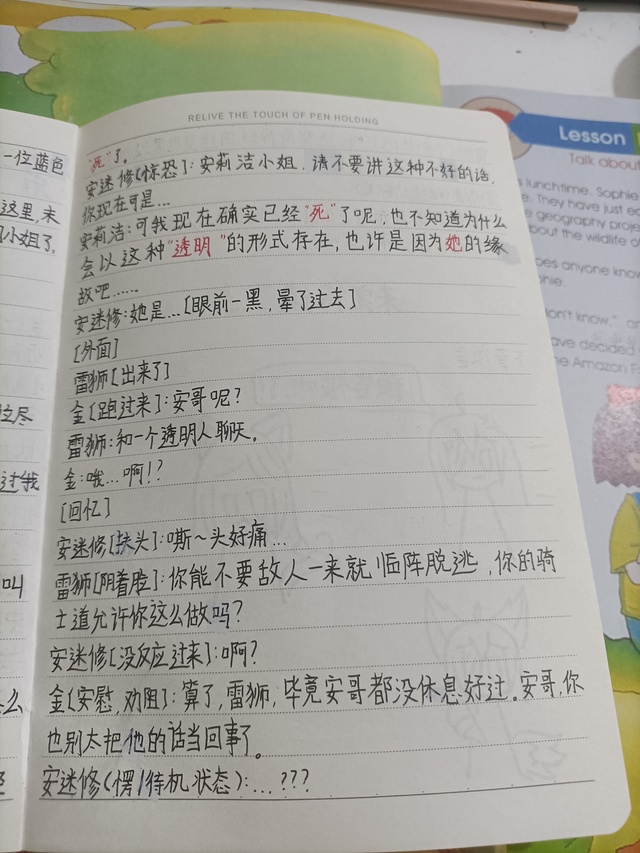 RELIVE THE TOUCH OF PEN HOLDING
"死"了。
安迷修(惊恐):安莉洁小姐，请不要讲这种不好的话，
你现在可是…
安莉洁:可我现在确实已经"死"了呢，也不知道为什么
会以这种"透明"的形式存在，也许是因为她的缘
故吧……
安迷修:她是…[眼前一黑，晕了过去]
[外面]
雷狮[出来了]
金[跑过来]:安哥呢?
雷狮:和一个透明人聊天。
金:哦…啊!?
[回忆]
安迷修[扶头]:嘶~头好痛…
雷狮[阴着脸]:你能不要敌人一来就临阵脱逃，你的骑
士道允许你这么做吗?
安迷修[没反应过来]:啊?
金[安慰，劝阻]:算了，雷狮，毕竟安哥都没休息好过。安哥，你
也别太把他的话当回事了。
安迷修(愣/待机状态):…???
一位蓝色
这里，未
小姐了，
尽
过我
叫
么
Lesson
Talk about
lunchtime. Sophie
e. They have just
geography proje
bout the wildlife o
oes anyone know
phie.
on't know,"
ave decided
he Amazon